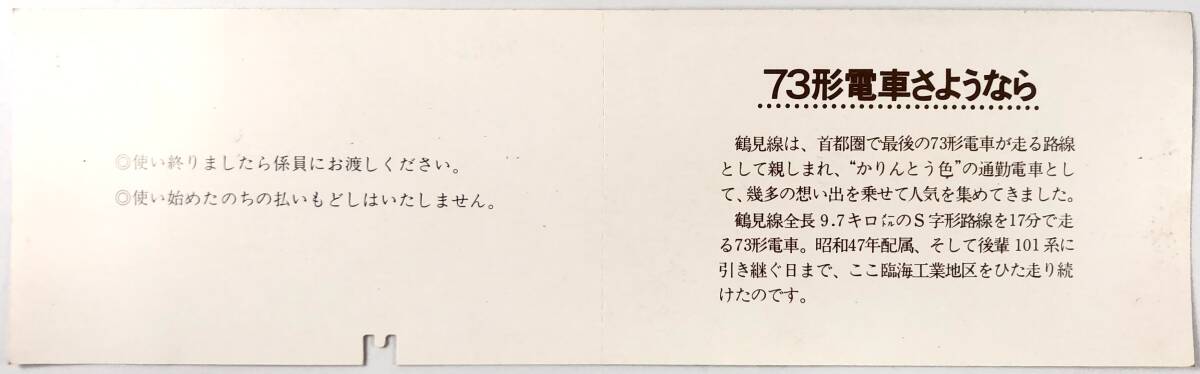 ◎使い終りましたら係員にお渡しください。
◎使い始めたのちの払いもどしはいたしません。
73形電車さようなら
鶴見線は、首都圏で最後の73形電車が走る路線
として親しまれ、“かりんとう色”の通勤電車とし
て、幾多の想い出を乗せて人気を集めてきました。
鶴見線全長9.7キロメートルのS字形路線を17分で走
る73形電車。昭和47年配属、そして後輩101系に
引き継ぐ日まで、ここ臨海工業地区をひた走り続
けたのです。